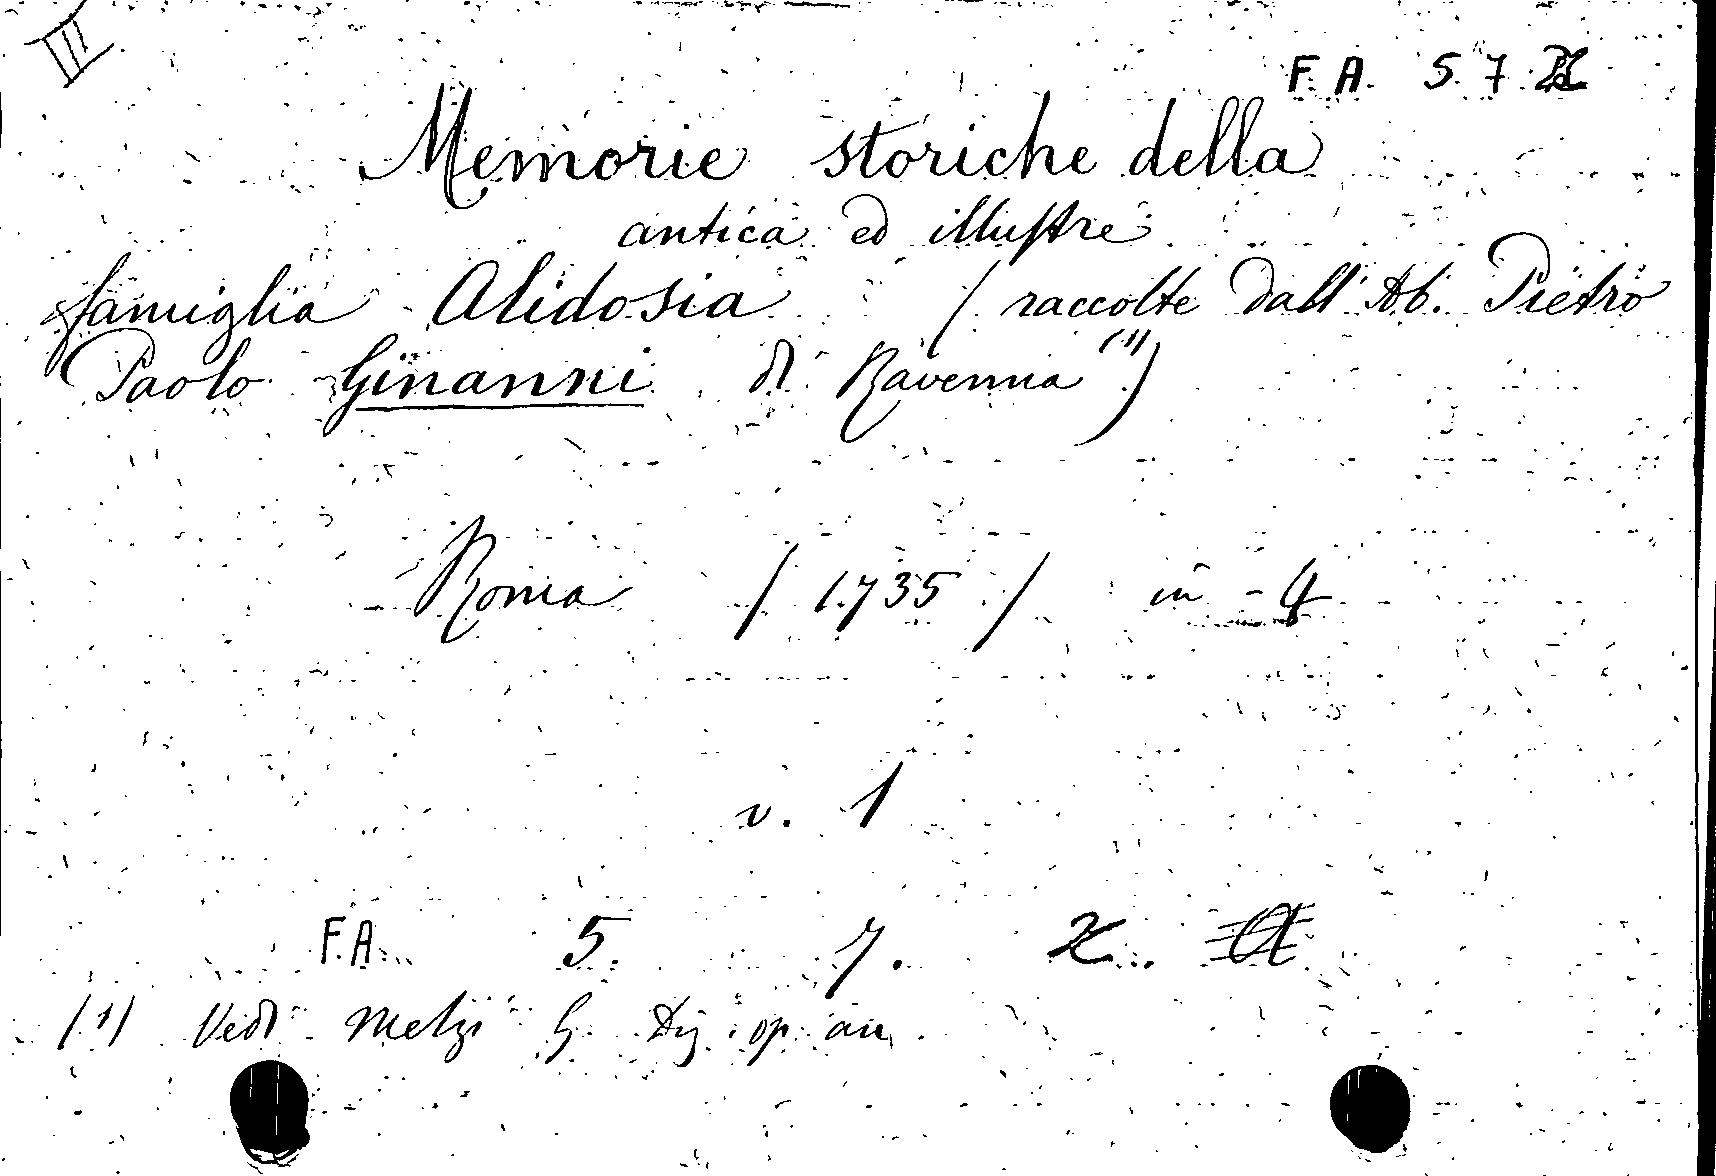 III
F. A. 5. 7.
Memorie storiche della
antica ed illustre
famiglia Alidosia ( raccolte dall' Ab. Pietro
Paolo Ginanni di Ravenna (1) )
Roma / 1735 / in - 4
v. 1
F. A. 5. 7.
(1) Vedi Melzi G. Diz. op. an.